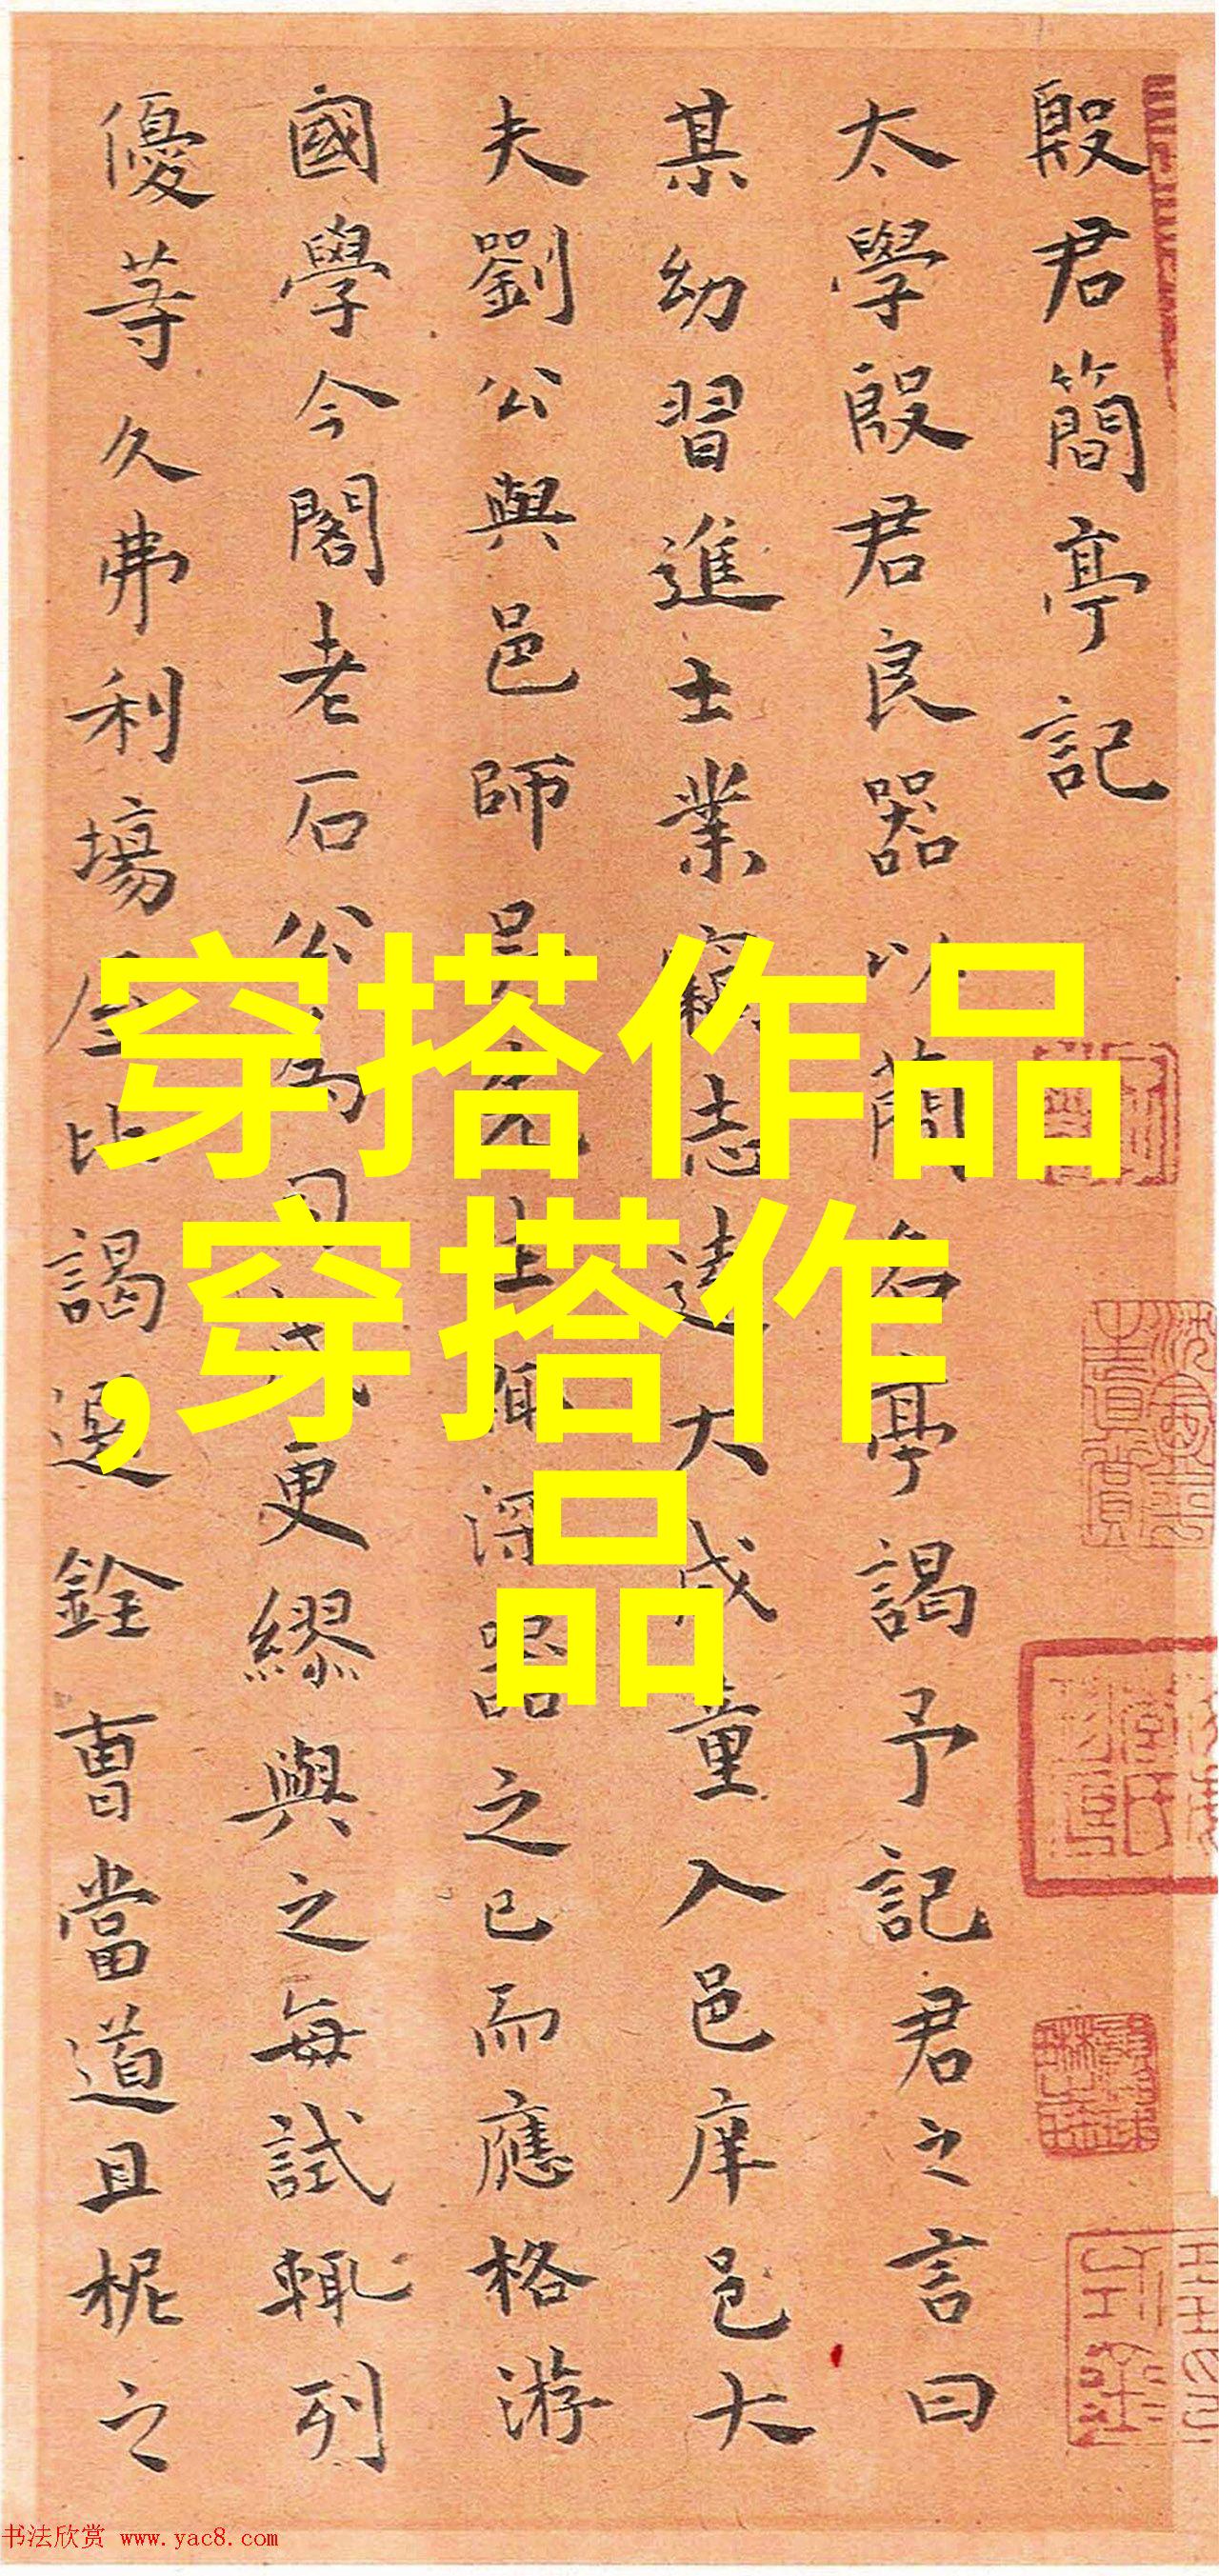 殷君簡亭記
太學殷君良器以簡名亭謁予記君之言曰
某幼習進士業竊志遠大成童入邑庠邑大
夫劉公與邑師吳先生深器之已而應格游
國學今閣老石公為更繆與之每試輒列
優等久弗利場屋比謁選銓曹當道且柅之
穿搭作品
,穿搭作
品
书法欣赏 www.yac8.com